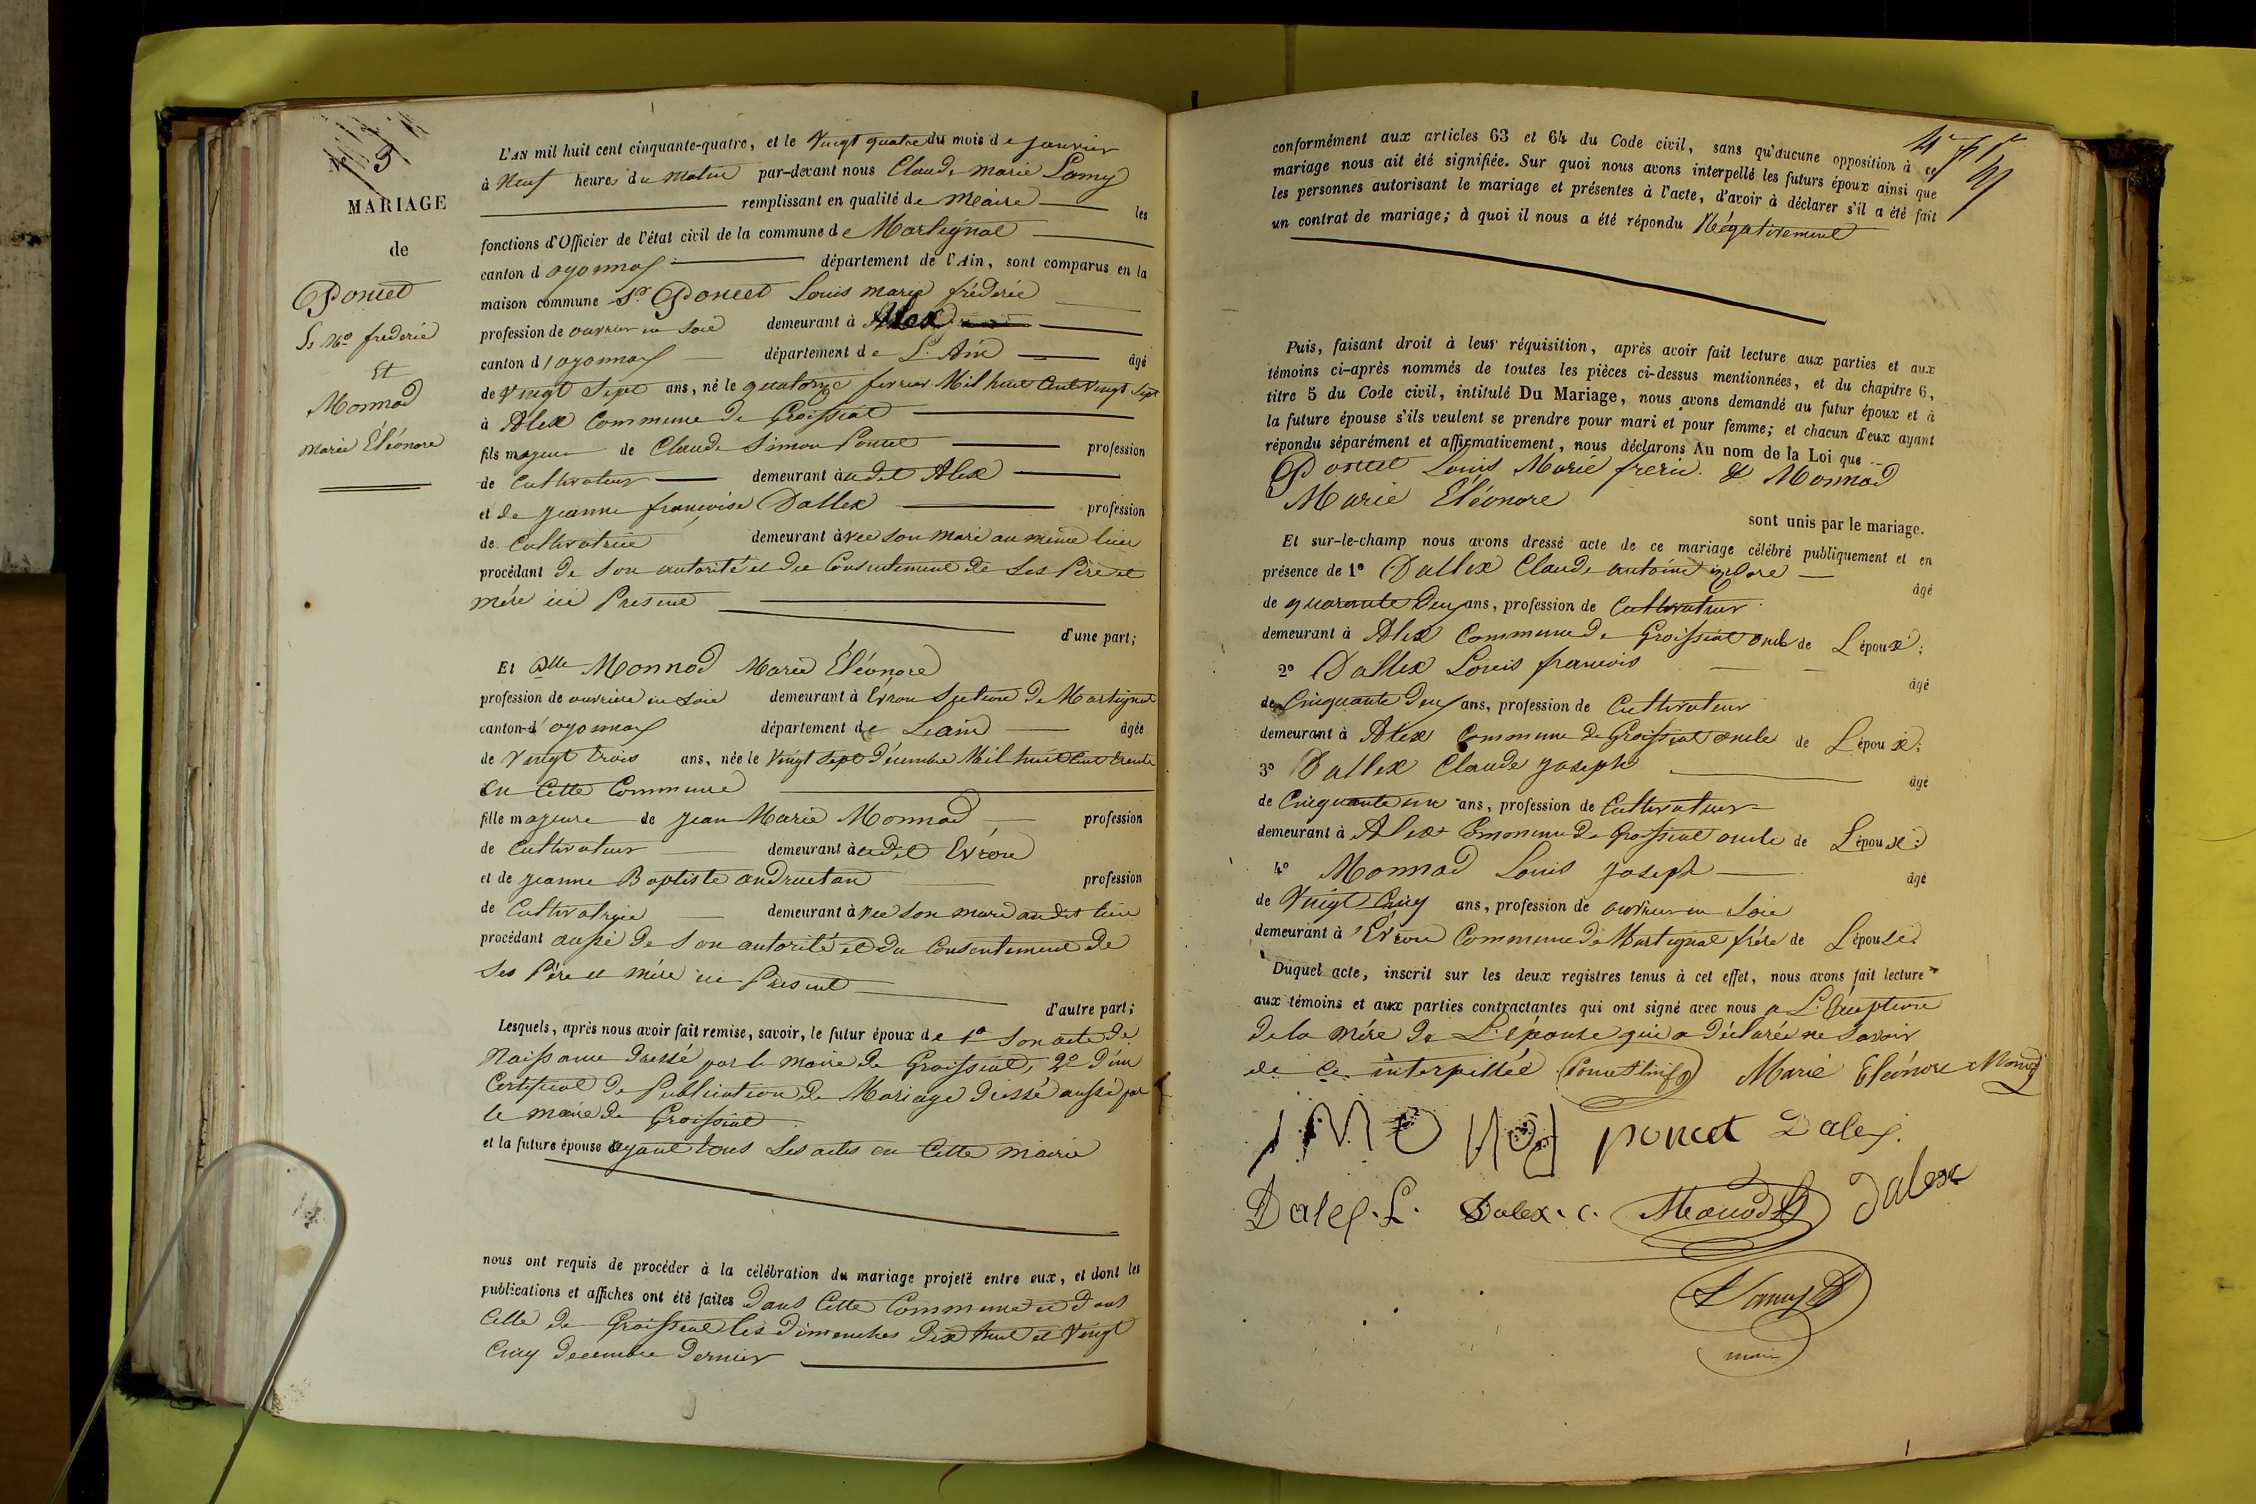 N° 3
MARIAGE
de
Poncet
Ls Mie frederic
Et
Monnod
Marie Éléonore
L'AN mil huit cent cinquante-quatre, et le Vingt quatre du mois de janvier
à Neuf heures du Matin par-devant nous Claude Marie Lamy
remplissant en qualité de Maire les
fonctions d'Officier de l'état civil de la commune de Martignat
canton d oyonnax département de l'Ain, sont comparus en la
maison commune Sr Poncet Louis Marie fréderic
profession de ouvrier en soie demeurant à Alex
canton d'oyonnax département de L'Ain âgé
de Vingt Sept ans, né le quatorze fevrier Mil huit Cent Vingt Sept
à Alex Commune de Groissiat
fils majeur de Claude Simon Poncet profession
de Cultivateur demeurant audit Alex
et de jeanne françoise Dallex profession
de Cultivatrice demeurant avec son mari au même lieu
procédant de son autorité et du Consentement de Ses Père et
mère ici Présent
d'une part;
Et Dlle Monnod Marie Éléonore
profession de ouvriere en soie demeurant à Evron Section de Martignat
canton d'oyonnax département de Lain âgée
de Vingt trois ans, née le Vingt sept Décembre Mil huit Cent trente
en Cette Commune
fille majeure de jean Marie Monnod profession
de Cultivateur demeurant audit Evron
et de jeanne Baptiste andruetan profession
de Cultivatrice demeurant avec son mari audit lieu
procédant aussi de son autorité et du Consentement de
Ses Père et mère ici Présent
d'autre part;
Lesquels, après nous avoir fait remise, savoir, le futur époux de 1° Son acte de
Naissance dressé par le maire de Groissiat, 2° D'un
Certificat de Publication de Mariage dressé aussi par
le maire de Groissiat
et la future épouse ayant tous Ses actes en Cette mairie
nous ont requis de procéder à la célébration du mariage projeté entre eux, et dont les
publications et affiches ont été faites dans Cette Commune et dans
Celle de Groissiat les dimenches dix huit et Vingt
Cinq decembre dernier
conformément aux articles 63 et 64 du Code civil, sans qu'aucune opposition à ce
mariage nous ait été signifiée. Sur quoi nous avons interpellé les futurs époux ainsi que
les personnes autorisant le mariage et présentes à l'acte, d'avoir à déclarer s'il a été fait
un contrat de mariage; à quoi il nous a été répondu Négativement
Puis, faisant droit à leur réquisition, après avoir fait lecture aux parties et aux
témoins ci-après nommés de toutes les pièces ci-dessus mentionnées, et du chapitre 6,
titre 5 du Code civil, intitulé Du Mariage, nous avons demandé au futur époux et à
la future épouse s'ils veulent se prendre pour mari et pour femme; et chacun d'eux ayant
répondu séparément et affirmativement, nous déclarons Au nom de la Loi que
Poncet Louis Marie freric & Monnod
Marie Eléonore
sont unis par le mariage.
Et sur-le-champ nous avons dressé acte de ce mariage célébré publiquement et en
présence de 1° Dallex Claude antoine âgé
de quarante Deux ans, profession de Cultivateur
demeurant à Alex Commune de Groissiat oncle de L'époux;
2° Dallex Louis francois âgé
de Cinquante Deux ans, profession de Cultivateur
demeurant à Alex Commune de Groissiat oncle de L'époux;
3° Dallex Claude joseph âgé
de Cinquante un ans, profession de Cultivateur
demeurant à Alex Commune de Groissiat oncle de L'époux;
4° Monnod Louis joseph âgé
de Vingt Cinq ans, profession de ouvrier en Soie
demeurant à Evron Commune de Martignat frére de L'épouse.
Duquel acte, inscrit sur les deux registres tenus à cet effet, nous avons fait lecture
aux témoins et aux parties contractantes qui ont signé avec nous a L'Exeption
de la mère de L'épouse qui a déclarée ne Savoir
de ce interpellée Marie Eléonore Monod
poncet Dalex.
Dalex. L. Dalex. C. Monod Dalex
Lamy
maire